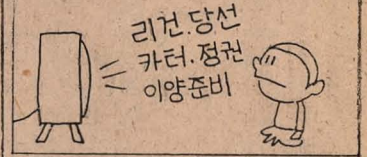 리건.당선
카터.정권
이양준비